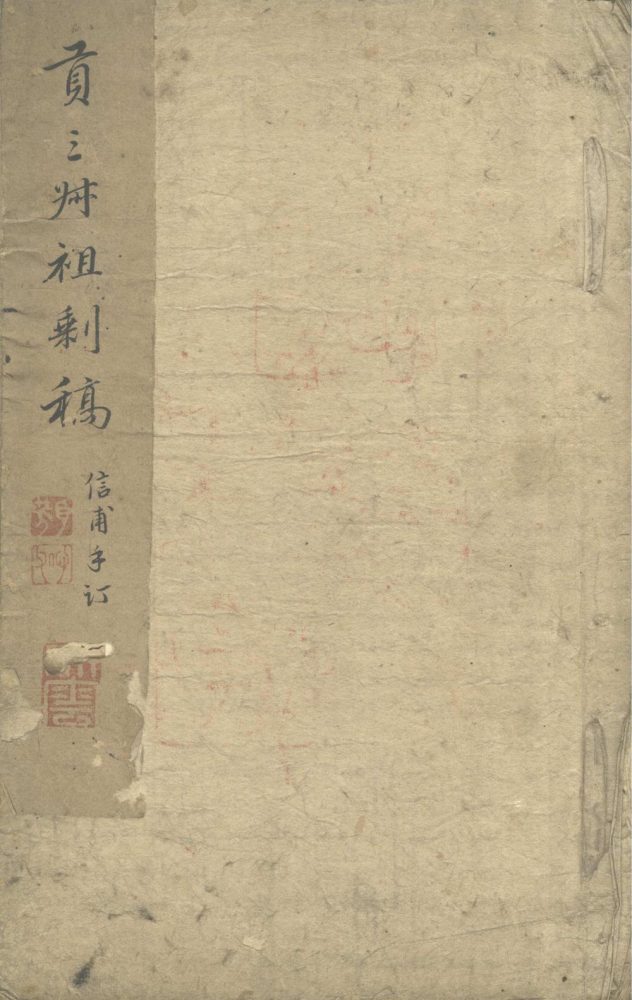 貢三叔祖剩稿
信甫手訂